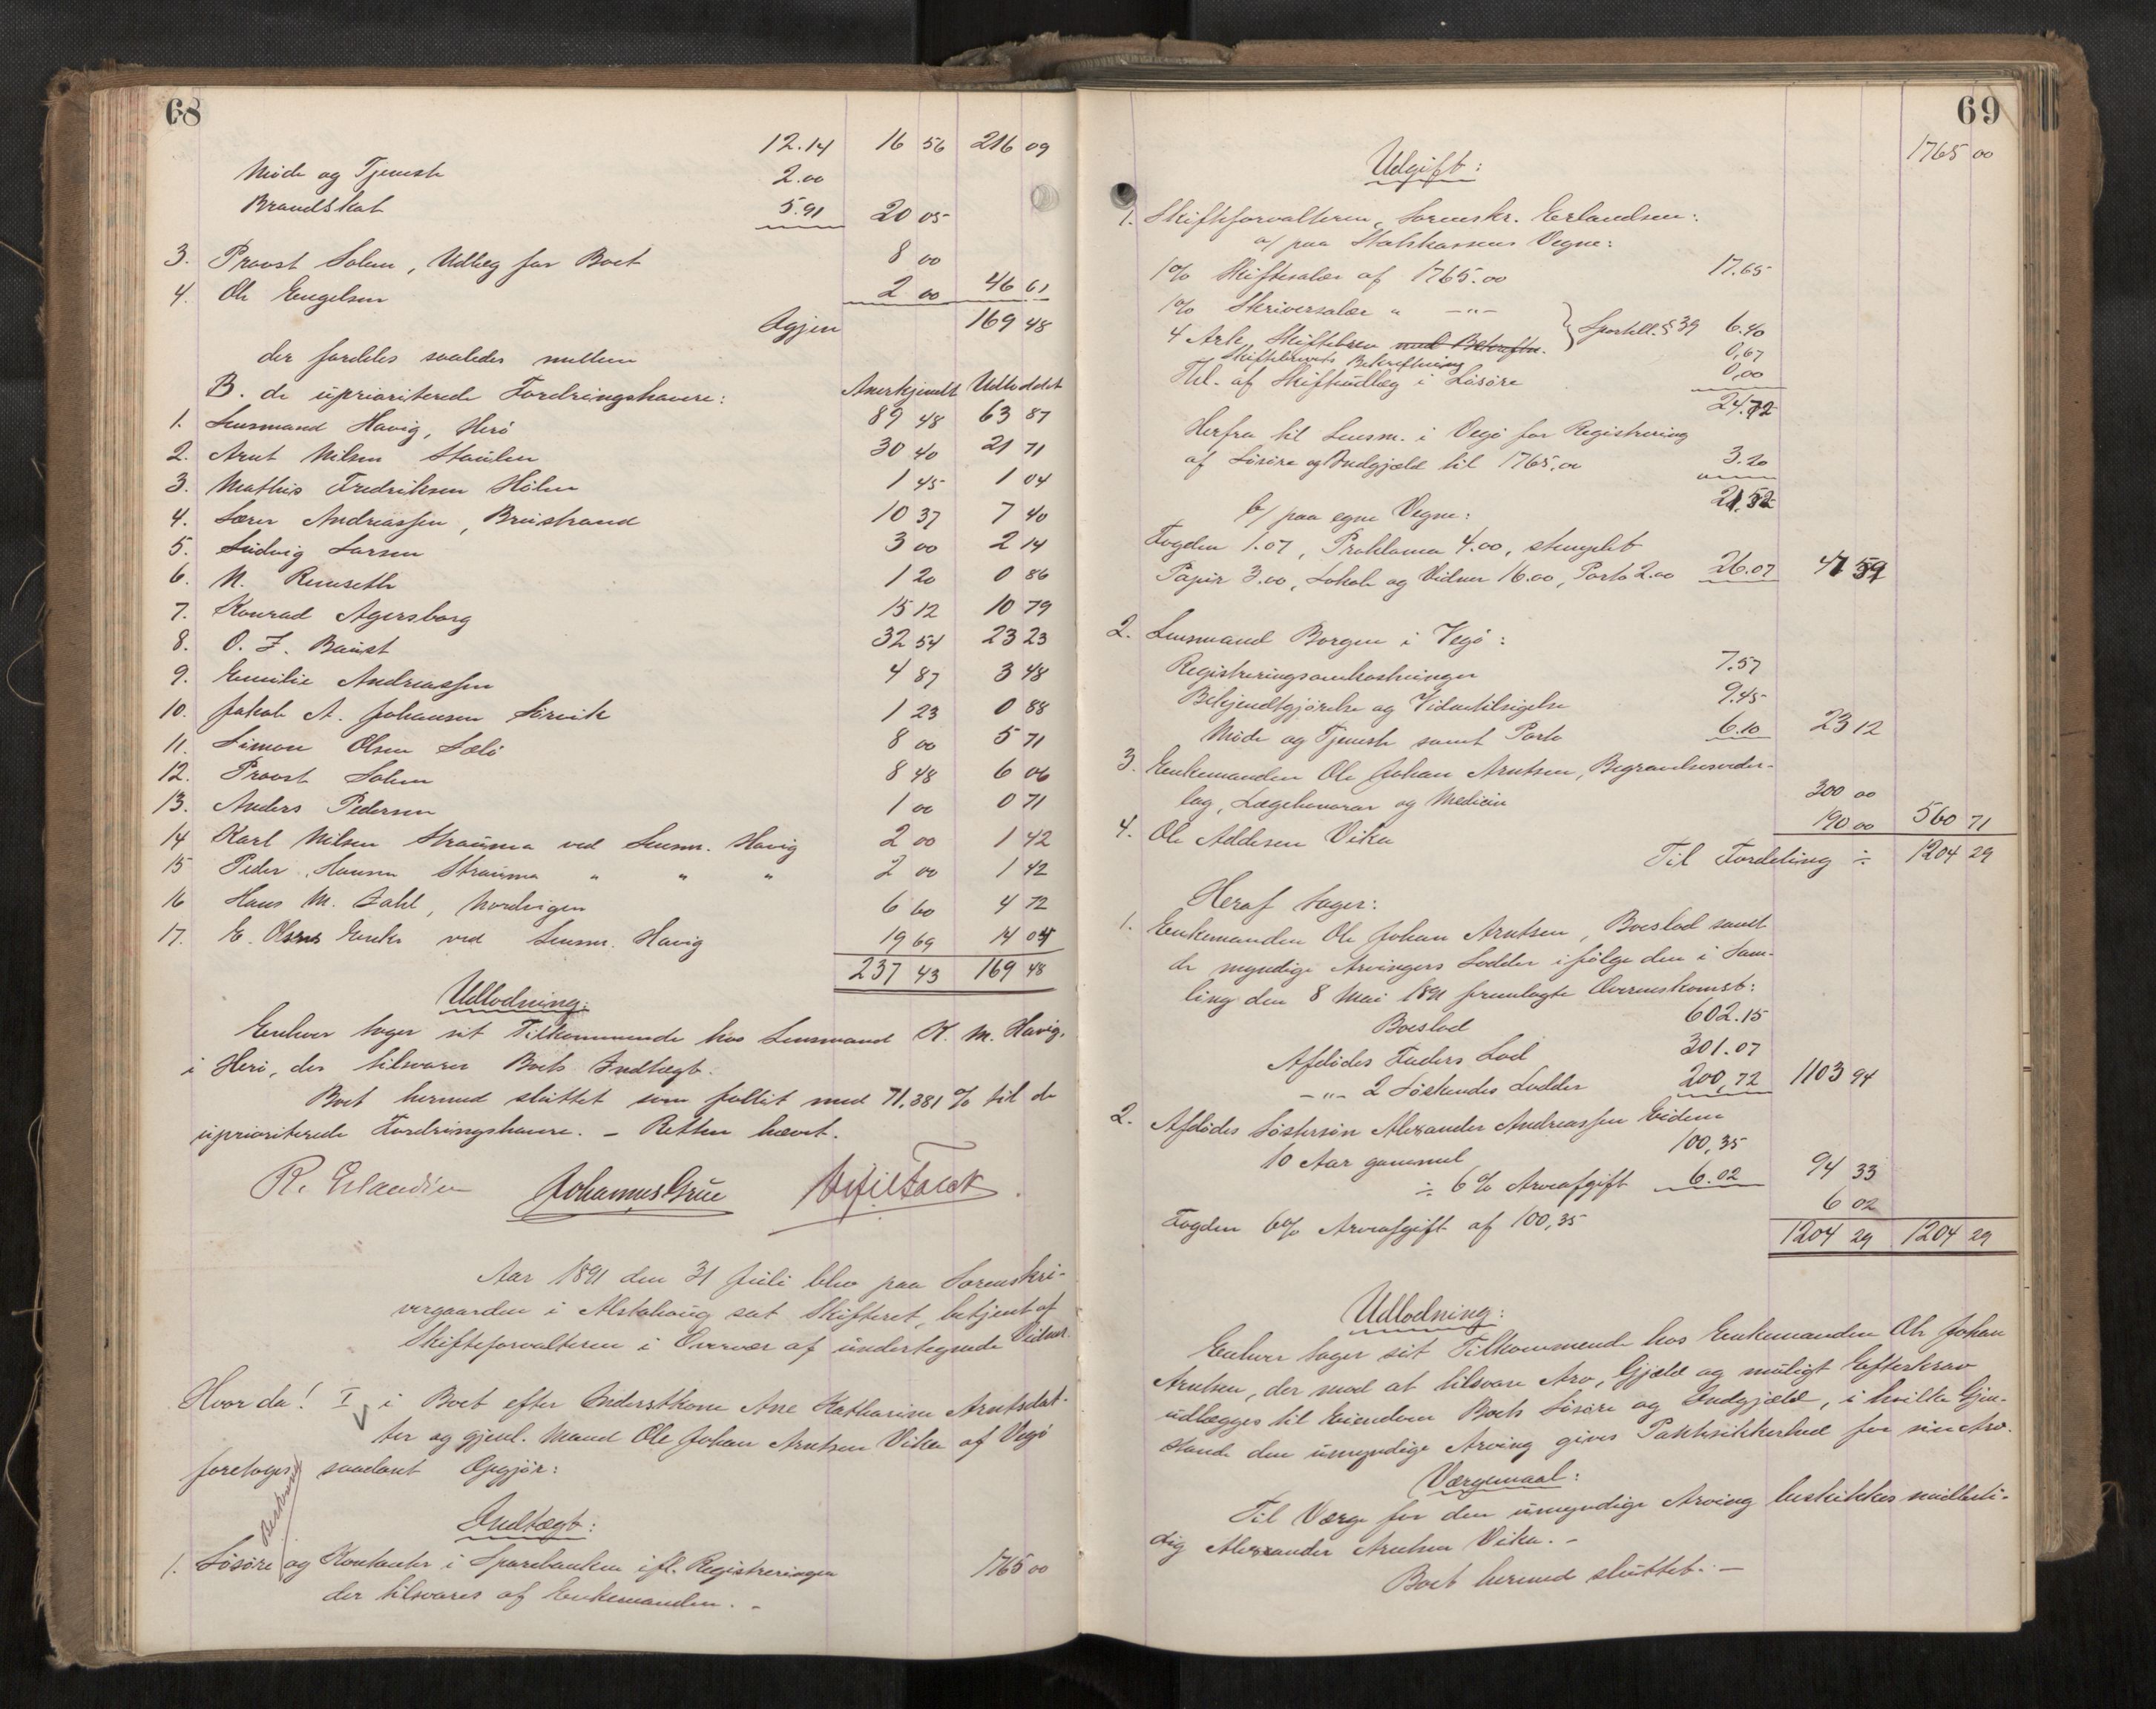 68
12.14 16 56 216 09
Møde og Tjeneste 2.00
Brandskat 5.91 20 05
3. Provst Solem, Udlæg for Boet 8 00
4. Ole Engelsen 2 00 46 61
Igjen 169 48
der fordeles saaledes mellem
B. de uprioriterede Fordringshavere: Anerkjendt Udloddet
1. Lensmand Havig, Herö 89 48 63 87
2. Arnt Nilsen Staulen 30 40 21 71
3. Mathis Fredriksen Holm 1 45 1 04
4. Sører Andreassen, Breistrand 10 37 7 40
5. Ludvig Larsen 3 00 2 14
6. N. Remseth 1 20 0 86
7. Konrad Agersborg 15 12 10 79
8. O. F. Baust 32 54 23 23
9. Emilie Andreassen 4 87 3 48
10. Jakob A. Johansen Sörvik 1 23 0 88
11. Simon Olsen Solö 8 00 5 71
12. Provst Solem 8 48 6 06
13. Anders Pedersen 1 00 0 71
14 Karl Nilsen Strauma ved Lensm. Havig 2 00 1 42
15 Peder Hansen Strauma " " " 2 00 1 42
16 Hans M. Zahl, Nordvigen 6 60 4 72
17. E. Olsens Enke ved Lensm. Havig 19 69 14 04
237 43 169 48
Udlodning:
Enhver tager sit Tilkommende hos Lensmand K. M. Havig,
i Herö, der tilsvarer Boets Indtægt.
Boet hermed sluttet som fallit med 71,381 % til de
uprioriterede Fordringshavere. – Retten hævet.
R. Erlandsen Johannes Grue
Aar 1891 den 31 Juli blev paa Sorenskri-
vergaarden i Alstahaug sat Skifteret, betjent af
Skifteforvalteren i Overvær af undertegnede Vidner.
Hvor da! I i Boet efter Inderstkone Ane Katharina Arntsdat-
ter og gjenl. Mand Ole Johan Arntsen Vika af Vegö
foretoges saadant Opgjör:
Indtægt:
1. Lösöre og Kontanter i Sparebanken ifl. Registreringen 1765 00
der tilsvares af Enkemanden. –
69
1765 00
Udgift:
1. Skifteforvalteren, Sorenskr. Erlandsen:
a/ paa Statskassens Vegne:
1% Skiftesalær af 1765.00 17.65
1% Skriversalær " –"–
4 Ark Skiftebrev med Bekræftn. } Sportell. § 39 6.40
Skiftebrevets Bekræftning 0,67
Thl. af Skifteudlæg i Lösöre 0,00
24.72
Herfra til Lensm. i Vegö for Registrering
af Lösöre og Indgjæld til 1765,00 3.20
21,52
b/ paa egne Vegne:
Fogden 1.07, Proklama 4.00, stemplet
Papir 3.00, Lokale og Vidner 16.00, Porto 2.00 26.07 47 59
2. Lensmand Borgen i Vegö:
Registreringsomkostninger 7.57
Bekjendtgjörelse og Vidnetilsigelse 9.45
Møde og Tjeneste samt Porto 6.10 23 12
3. Enkemanden Ole Johan Arntsen, Begravelsesveder-
lag, Lægehonorar og Medicin 300 00
4. Ole Addesen Vika 190 00 560 71
Til Fordeling ÷ 1204 29
Heraf tager:
1. Enkemanden Ole Johan Arntsen, Boeslod samt
de myndige Arvingers Lodder ifølge den i Sam-
ling den 8 Mai 1891 fremlagte Overenskomst:
Boeslod 602.15
Afdödes Faders Lod 301.07
–"– 2 Söskendes Lodder 200,72 1103 94
2. Afdödes Söstersön Alexander Andreassen Eidem
10 Aar gammel 100,35
÷ 6% Arveafgift 6.02 94 33
Fogden 6% Arveafgift af 100,35 6 02
1204 29 1204 29
Udlodning:
Enhver tager sit Tilkommende hos Enkemanden Ole Johan
Arntsen, der mod at tilsvare Arv, Gjæld og muligt Efterkrav
udlægges til Eiendom Boets Lösöre og Indgjæld, i hvilke Gjen-
stande den umyndige Arving gives Pantesikkerhed for sin Arv.
Værgemaal:
Til Værge for den umyndige Arving beskikkes midlerti-
dig Alexander Arntsen Vika. –
Boet hermed sluttet. –